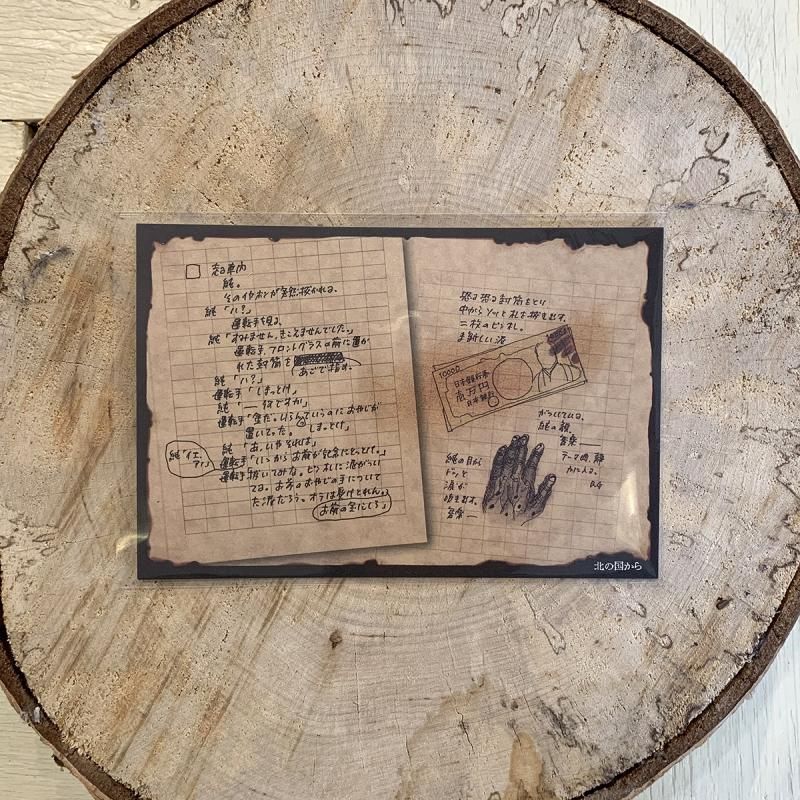 走る車内
純。
そのイヤホンが突然抜かれる。
純「ハ？」
運転手を見る。
純「すみません。きこえませんでした。」
運転手、フロントグラスの前に置か
れた封筒を
あごで指す。
純「ハ？」
運転手「しまっとけ」
純「――何ですか」
運転手「金だ。いらんていうのにおやじが
置いてった。しまっとけ」
純「あ、いやそれは」
純「イエ、
ア、」
運転手「いいからお前が記念にとっとけ。」
運転手「抜いてみな。ピン札に泥がつい
てる。お前のおやじの手について
た泥だろう。オラは受けとれん。
お前の宝にしろ」
恐る恐る封筒をとり
中からソッと札を抜き出す。
二枚のピン札。
ま新しい泥
10000
日本銀行券
壱万円
日本銀行
がついている。
純の顔。
音楽――
テーマ曲 静
かに入る。
純の目から
ドッと
涙が
吹き出す。
音楽――
北の国から